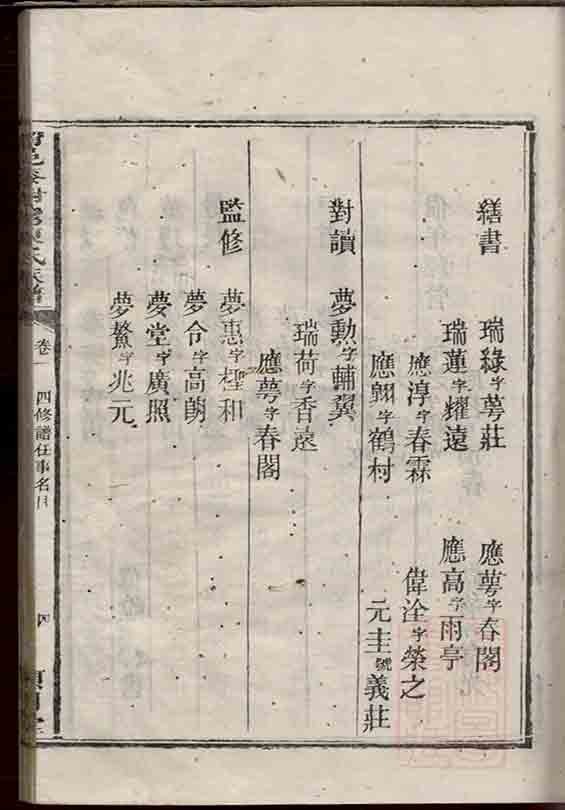 繕書 瑞綠字萼莊 應萼字春閣
瑞蓮字耀遠 應高字雨亭
應淳字春霖 偉詮字榮之
應翺字鶴村 元圭號義莊
對讀 夢勲字輔翼
瑞荷字香遠
應萼字春閣
監修 夢惠字檉和
夢令字高朗
夢堂字廣照
夢鰲字兆元
卷一 四修譜任事名目